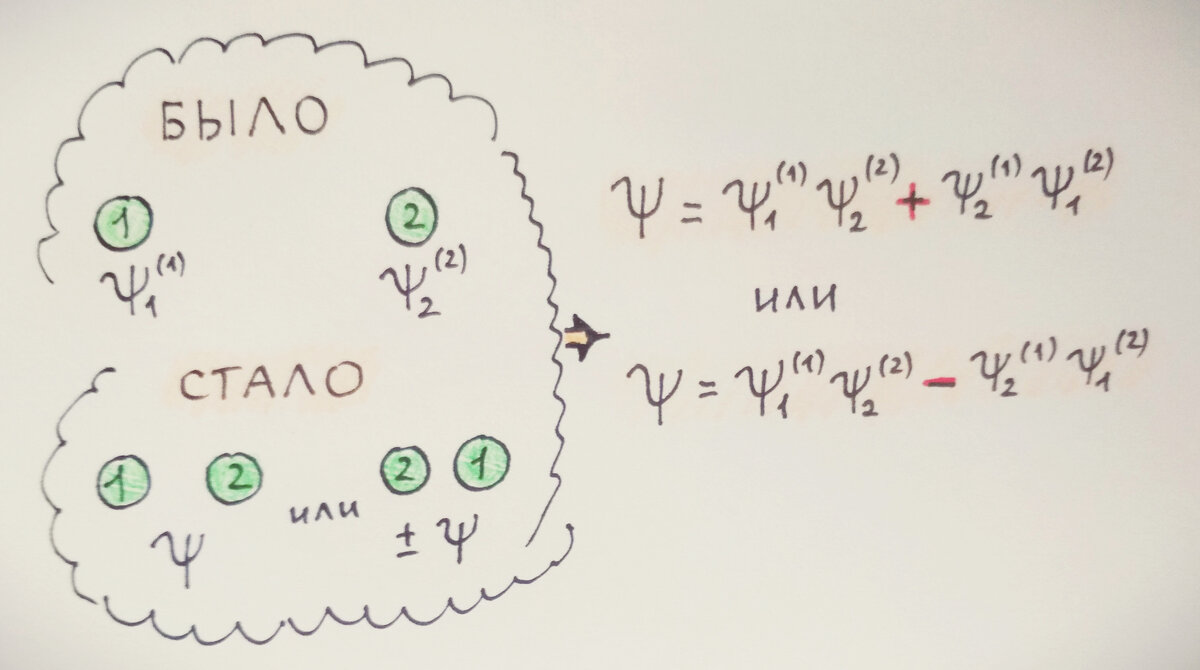 БЫЛО
1 2
ψ₁⁽¹⁾ ψ₂⁽²⁾
СТАЛО
1 2 или 2 1
ψ ± ψ
ψ = ψ₁⁽¹⁾ ψ₂⁽²⁾ + ψ₂⁽¹⁾ ψ₁⁽²⁾
или
ψ = ψ₁⁽¹⁾ ψ₂⁽²⁾ − ψ₂⁽¹⁾ ψ₁⁽²⁾